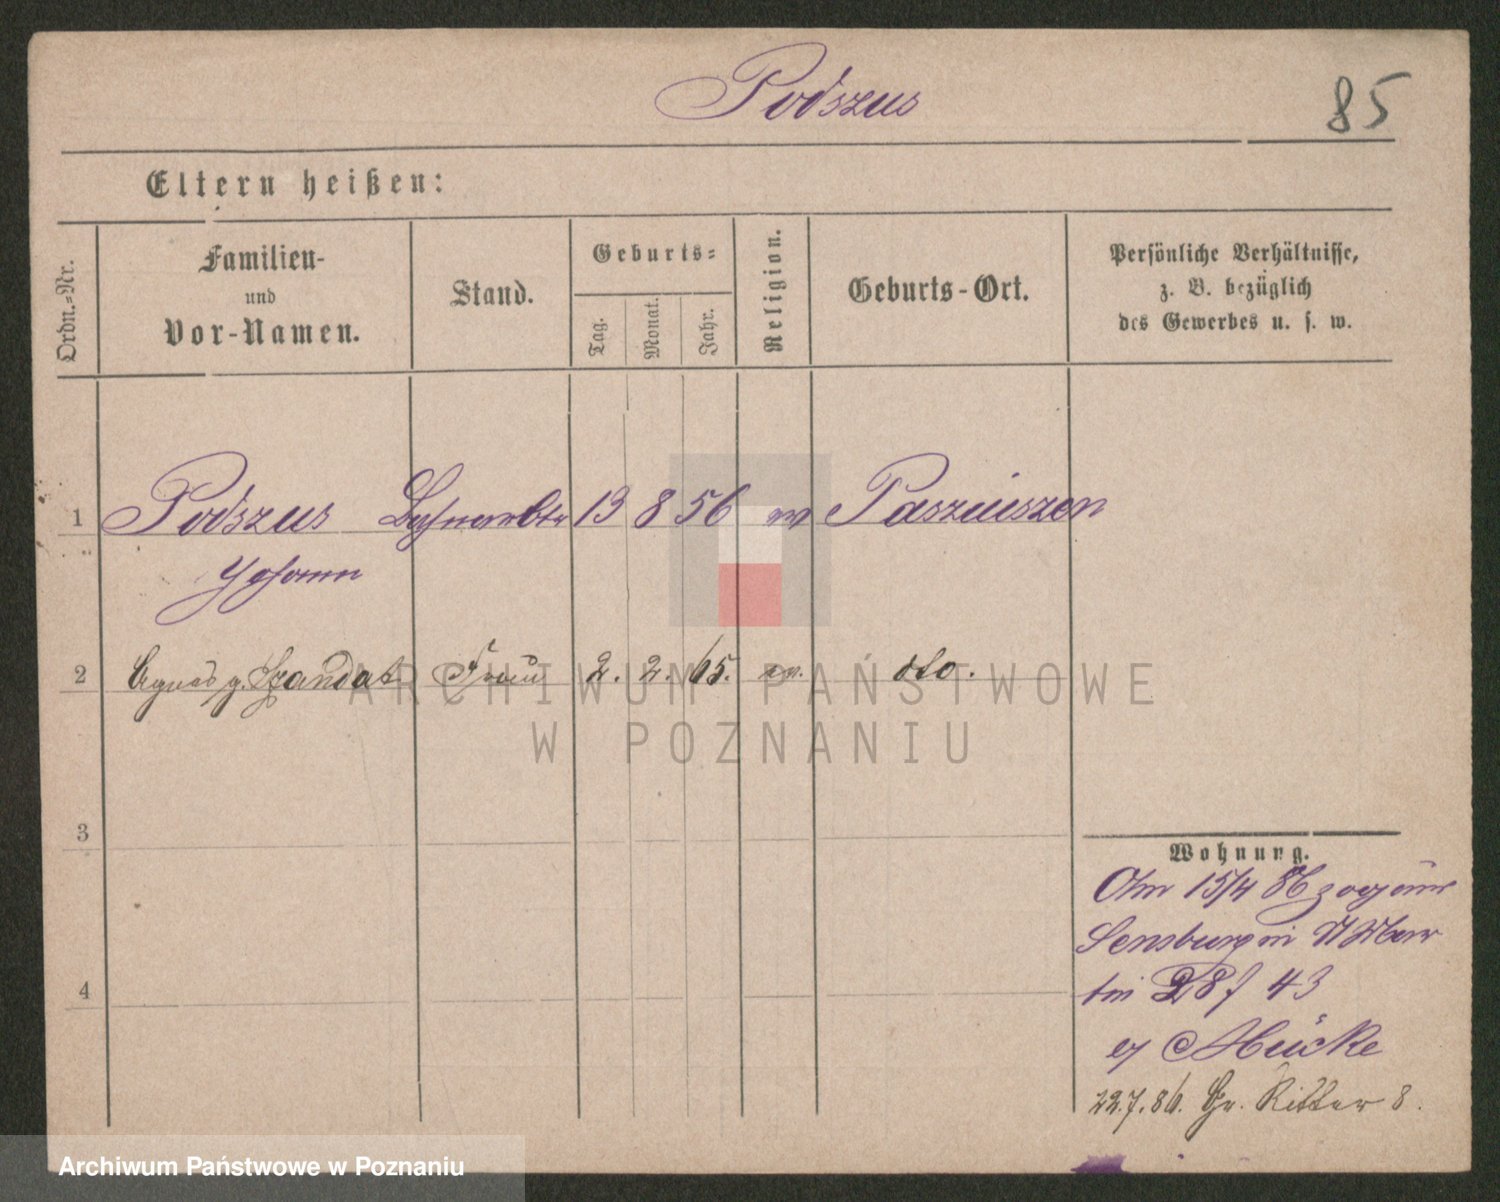 Podszus
85
Eltern heißen:
Ordn.-Nr.
Familien-
und
Vor-Namen.
Stand.
Geburts-
Tag.
Monat.
Jahr.
Religion.
Geburts-Ort.
Persönliche Verhältnisse,
z. B. bezüglich
des Gewerbes u. s. w.
1 Podszus Bahnarbtr 13 8 56 ev Paszuiszen
Johann
2 Agnes g. Szandat Frau 2. 2. 65. ev. dto.
3
4
Wohnung.
Am 15/4 86 zog aus
Sensburg in
28 43
Mücke
22.7.86. Gr. Ritter 8.
ARCHIWUM PAŃSTWOWE
W POZNANIU
Archiwum Państwowe w Poznaniu